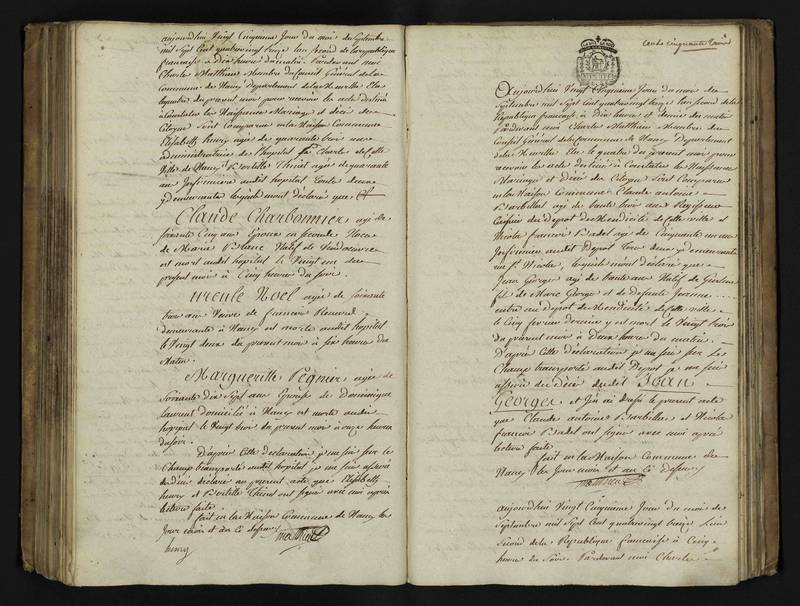 aujourdhui Vingt Cinquieme Jour du mois de Septembre
mil Sept Cent quatre vingt treize lan Second de la republique
française à Dix heures du matin. Pardevant moi
Charles Matthieu Membre du Conseil Général de la
Commune de Nancy Département de la Meurthe Elu
le quatre du present mois pour recevoir les actes destinés
a Constater les Naissances Mariages et décès des
Citoyens Sont Comparus en la Maison Commune
Elisabeth henry agée de quarante trois ans
administratrice de l'hopital St Charles de cette
Ville de Nancy agée de quarante
ans Infirmiere audit hopital toute deux
y demeurante lesquels mont déclaré que
Claude Charbonnier agé de
soixante Cinq ans Epoux en seconde Noce
de Marie Blaise Natif de Vandoeuvre
est mort audit hopital le Vingt un du
present mois à Cinq heures du soir.
urcule Noel agée de soixante
trois ans Veuve de francois Renard
demeurante à Nancy est morte audit hopital
le Vingt deux du present mois à six heures du
Matin.
Margueritte Pegnier agée de
Soixante Dix Sept ans Epouse de Dominique
Laurent domicilié à Nancy est morte audit
hopital le Vingt trois du present mois à onze heures
du soir.
D'après Cette déclaration je me suis sur le
Champ transporté audit hopital je me suis assuré
du décès déclaré au present acte que Elisabeth
henry et ont signé avec moi après
lecture faite.
fait en la Maison Commune de Nancy les
Jour mois et an Ci dessus
Matthieu
henry
Cent cinquante trois
Aujourdhui Vingt Cinquieme Jour du mois de
Septembre mil Sept Cent quatre vingt treize lan second de la
République française, à Dix heures et demie du matin
Pardevant moi Charles Matthieu Membre du
Conseil Général de la Commune de Nancy Département
de la Meurthe Elu le quatre du present mois pour
recevoir les actes destinés à Constater les Naissances
Mariages et Décès des Citoyens Sont Comparus
en la Maison Commune Claude antoine
Barbillat agé de trente trois ans Regisseur
du Depot de Mendicité de cette ville et
Nicolas francois Badel agé de Cinquante un ans
Infirmier audit Depot tous deux y demeurants
rue St Nicolas, lesquels mont déclaré que
Jean Georges agé de trente ans Natif de
fils de Marc Georges et de Defunte Jeanne ....
entré au Depot de Mendicité de cette ville
le Cinq fevrier dernier y est mort le Vingt trois
du present mois à Deux heures du matin.
D'après Cette déclaration je me suis sur Le
Champ transporté audit Depot je me suis
assuré du Décès dudit Jean
Georges et J'ai dressé le present acte
que Claude antoine Barbillat et Nicolas
francois Badel ont signé avec moi après
lecture faite
fait en la Maison Commune de
Nancy les Jour mois et an Ci dessus
Matthieu
aujourdhui Vingt Cinquieme Jour du mois de
Septembre mil Sept Cent quatre vingt treize L'an
Second de la Republique française à Cinq
heures du Soir. Pardevant moi Charles